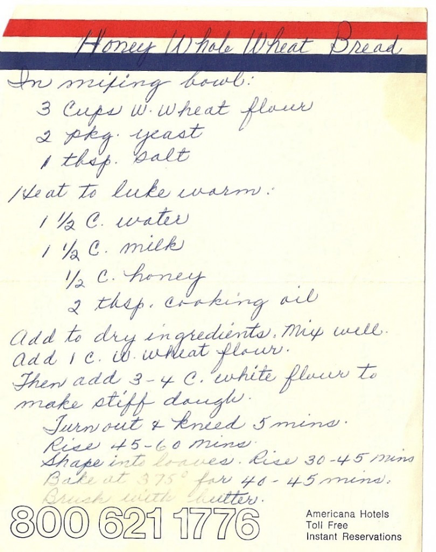 Honey Whole Wheat Bread
In mixing bowl:
3 Cups W. Wheat flour
2 pkg. yeast
1 tbsp. salt
Heat to luke warm:
1 1/2 C. water
1 1/2 C. milk
1/2 C. honey
2 tbsp. cooking oil
Add to dry ingredients. Mix well.
Add 1 C. W. Wheat flour.
Then add 3-4 C. white flour to
make stiff dough.
Turn out & kneed 5 mins.
Rise 45-60 mins.
Shape into loaves. Rise 30-45 mins
Bake at 375° for 40-45 mins.
Brush with butter.
800 621 1776
Americana Hotels
Toll Free
Instant Reservations